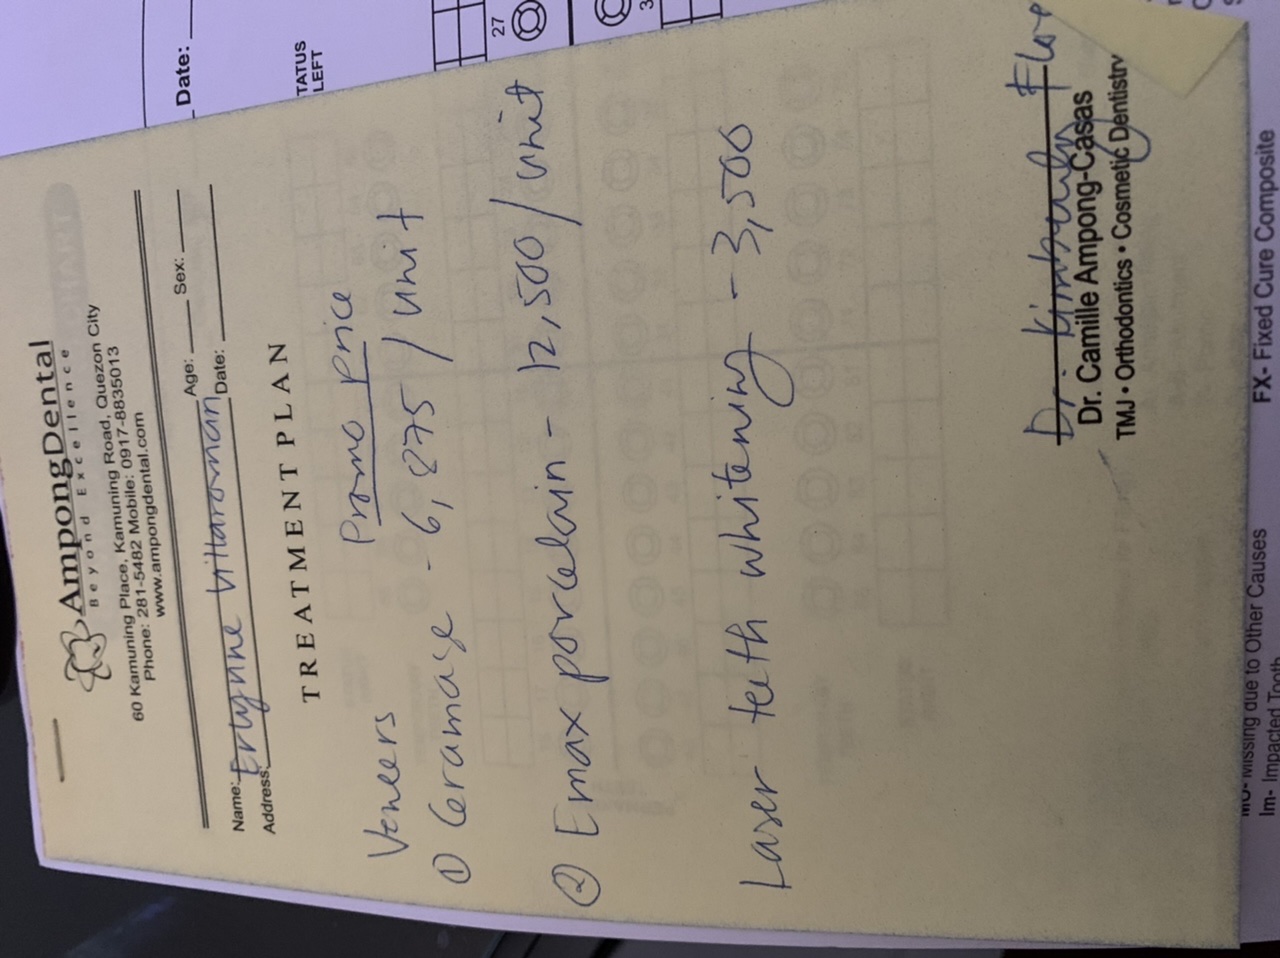 AmpongDental
Beyond Excellence
60 Kamuning Place, Kamuning Road, Quezon City
Phone: 281-5482 Mobile: 0917-8835013
www.ampongdental.com
Name: Erlynne Villaroman Age: Sex:
Address: Date:
TREATMENT PLAN
Promo price
Veneers
① Ceramage - 6,875 / unit
② Emax porcelain - 12,500 / unit
Laser teeth whitening - 3,500
Dr. Kimberly Flore
Dr. Camille Ampong-Casas
TMJ • Orthodontics • Cosmetic Dentistry
Date:
TATUS
LEFT
27
3
MO- Missing due to Other Causes
Im- Impacted Tooth
FX- Fixed Cure Composite